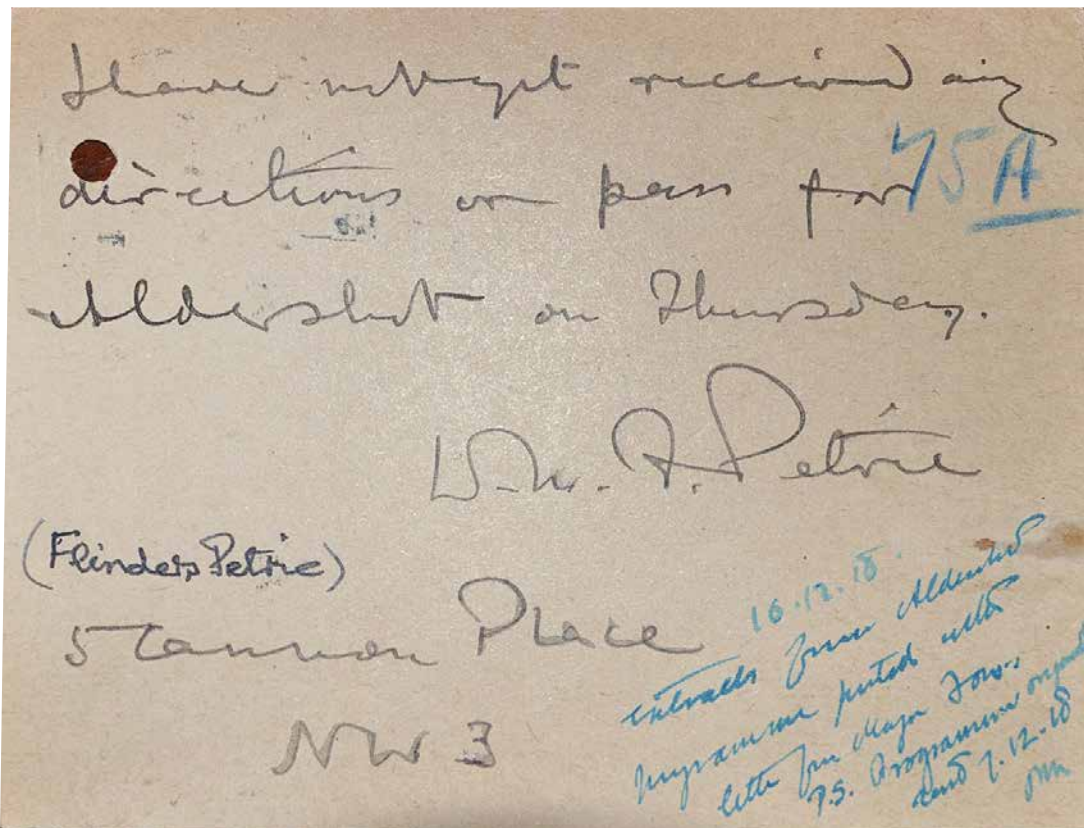 I have not yet received any
directions or pass for
75A
Aldershot on Thursday.
W. M. F. Petrie
(Flinders Petrie)
5 Cannon Place
NW 3
16.12.18
extracts from Aldershot
programme posted with
letter from Major
P.S. Programme original
send 7.12.18